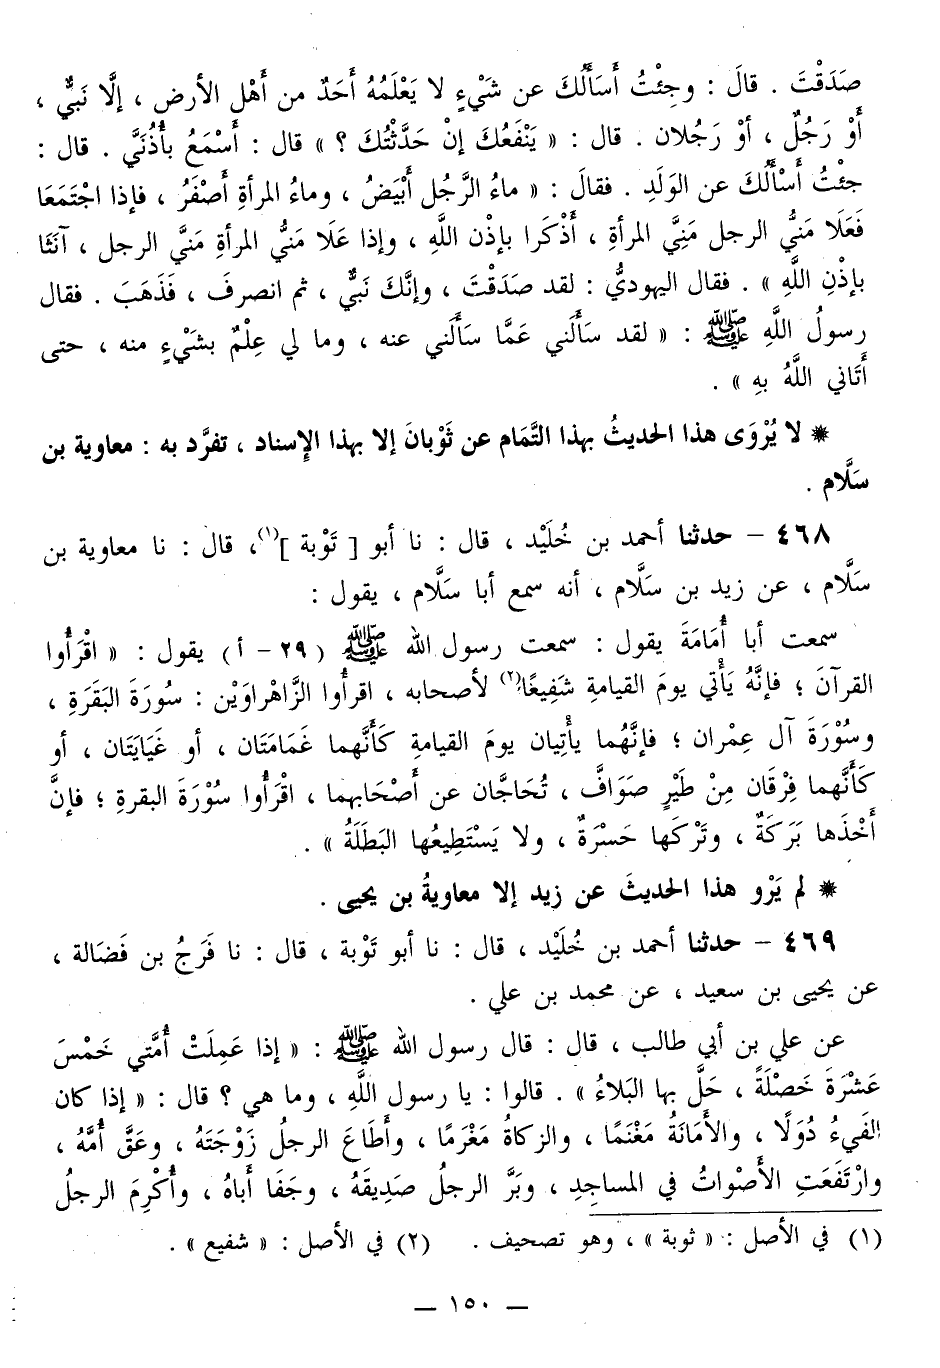 صَدَقْتَ . قالَ : وجِئْتُ أَسَأَلُكَ عن شَيْءٍ لا يَعْلَمُهُ أَحَدٌ من أَهْل الأرض ، إلَّا نَبيٌّ ،
أَوْ رَجُلٌ ، أوْ رَجُلان . قال : « يَنْفَعُكَ إنْ حَدَّثْتُكَ ؟ » قال : أَسْمَعُ بأُذُنَيَّ . قال :
جئْتُ أَسْأَلُكَ عن الوَلَدِ . فقالَ : « ماءُ الرَّجُل أَبْيَضُ ، وماءُ المرأةِ أَصْفَرُ ، فإذا اجْتَمَعَا
فَعَلَا مَنيُّ الرجل مَنِيَّ المرأةِ ، أَذْكَرا بإذْن اللَّهِ ، وإذا عَلَا مَنيُّ المرأةِ مَنيَّ الرجل ، آنَثَا
بإذْنِ اللَّهِ » . فقال اليهوديُّ : لقد صَدَقْتَ ، وإنَّكَ نَبيٌّ ، ثم انصرفَ ، فَذَهَبَ . فقال
رسولُ اللَّهِ ﷺ : « لقد سَأَلَني عَمَّا سَأَلَني عنه ، وما لي عِلْمٌ بشَيْءٍ منه ، حتى
أَتَاني اللَّهُ بهِ » .
* لا يُرْوَى هذا الحديثُ بهذا التَّمَام عن ثَوْبانَ إلا بهذا الإسناد ، تفرَّد به : معاوية بن
سَلَّام .
٤٦٨ – حدثنا أحمد بن خُلَيْد ، قال : نا أبو [ تَوْبة ](١)، قال : نا معاوية بن
سَلَّام ، عن زيد بن سَلَّام ، أنه سمع أبا سَلَّام ، يقول :
سمعت أبا أُمَامَةَ يقول : سمعت رسول الله ﷺ ( ٢٩ – أ ) يقول : « اقْرَأُوا
القرآنَ ؛ فإنَّهُ يَأْتي يومَ القيامةِ شَفِيعًا(٢) لأصحابه ، اقرأُوا الزَّاهْراوَيْن : سُورَةَ البَقَرَةِ ،
وسُوْرَةَ آل عِمْران ؛ فإنَّهُما يأْتِيان يومَ القيامةِ كَأَنَّهما غَمَامَتَان ، أو غَيَايَتَان ، أو
كَأَنَّهما فِرْقَان مِنْ طَيْرٍ صَوَافَّ ، تُحَاجَّان عن أَصْحَابهما ، اقْرأُوا سُوْرَةَ البقرةِ ؛ فإنَّ
أَخْذَها بَرَكَةٌ ، وتَرْكَها حَسْرَةٌ ، ولا يَسْتَطِيعُها البَطَلَةُ » .
* لم يَرْو هذا الحديثَ عن زيد إلا معاويةُ بن يحيى .
٤٦٩ – حدثنا أحمد بن خُلَيْد ، قال : نا أبو تَوْبة ، قال : نا فَرَجُ بن فَضَالة ،
عن يحيى بن سعيد ، عن محمد بن علي .
عن علي بن أبي طالب ، قال : قال رسول الله ﷺ : « إذا عَمِلَتْ أُمَّتي خَمْسَ
عَشْرَةَ خَصْلَةً ، حَلَّ بها البَلاءُ » . قالوا : يا رسول اللَّهِ ، وما هي ؟ قال : « إذا كان
الفَيءُ دُوَلًا ، والأَمَانَةُ مَغْنَمًا ، والزكاةُ مَغْرَمًا ، وأَطَاعَ الرجلُ زَوْجَتَهُ ، وعَقَّ أُمَّهُ ،
وارْتَفَعَتِ الأَصْواتُ في المساجِدِ ، وبَرَّ الرجلُ صَدِيقَهُ ، وجَفَا أَباهُ ، وأُكْرِمَ الرجلُ
(١) في الأصل : « ثوبة » ، وهو تصحيف . (٢) في الأصل : « شفيع » .
— ١٥٠ —